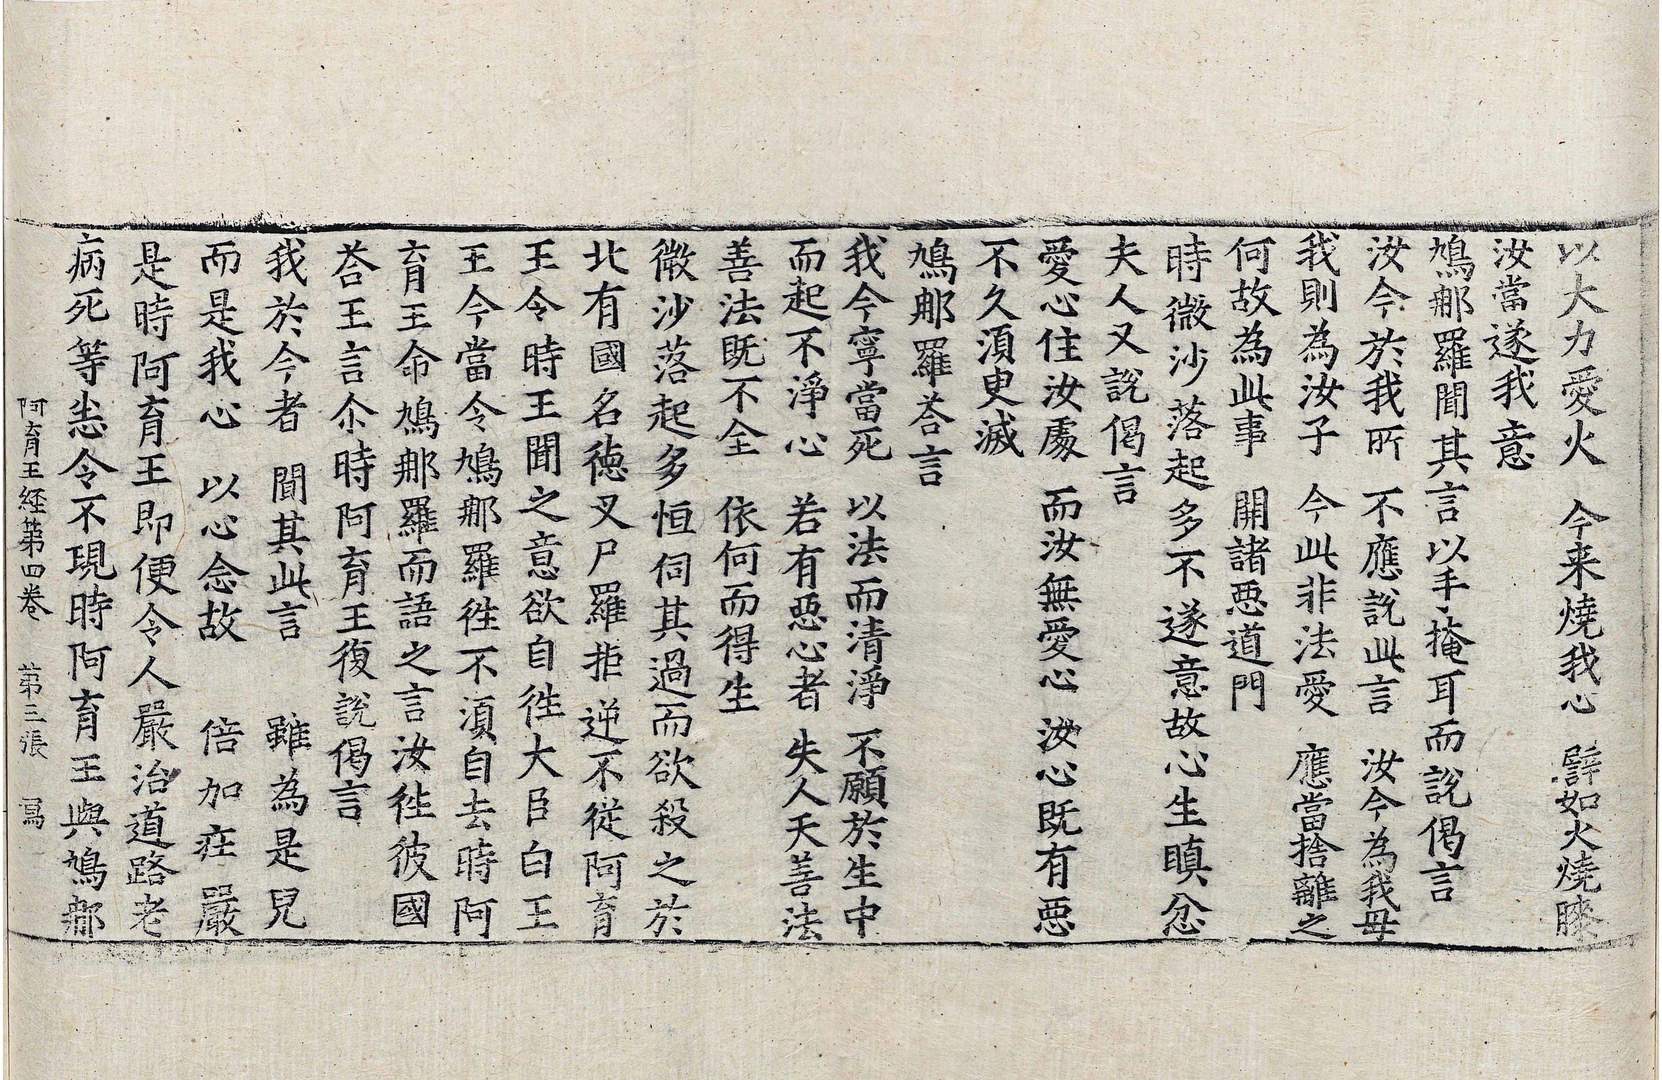 以大力愛火　今来燒我心　譬如火燒膝
汝當遂我意
鳩那羅聞其言以手掩耳而說偈言
汝今於我所　不應說此言　汝今為我母
我則為汝子　今此非法愛　應當捨離之
何故為此事　開諸惡道門
時微沙落起多不遂意故心生瞋忿
夫人又說偈言
愛心住汝處　而汝無愛心　汝心既有惡
不久須臾滅
鳩那羅荅言
我今寧當死　以法而清淨　不願於生中
而起不淨心　若有惡心者　失人天善法
善法既不全　依何而得生
微沙落起多恒伺其過而欲殺之於
北有國名德叉尸羅拒逆不從阿育
王令時王聞之意欲自徃大臣白王
王今當令鳩那羅徃不須自去時阿
育王命鳩那羅而語之言汝徃彼國
荅王言尒時阿育王復說偈言
我於今者　聞其此言　雖為是兒
而是我心　以心念故　倍加莊嚴
是時阿育王即便令人嚴治道路老
病死等悉令不現時阿育王與鳩那
阿育王経第四卷　第三張　寫